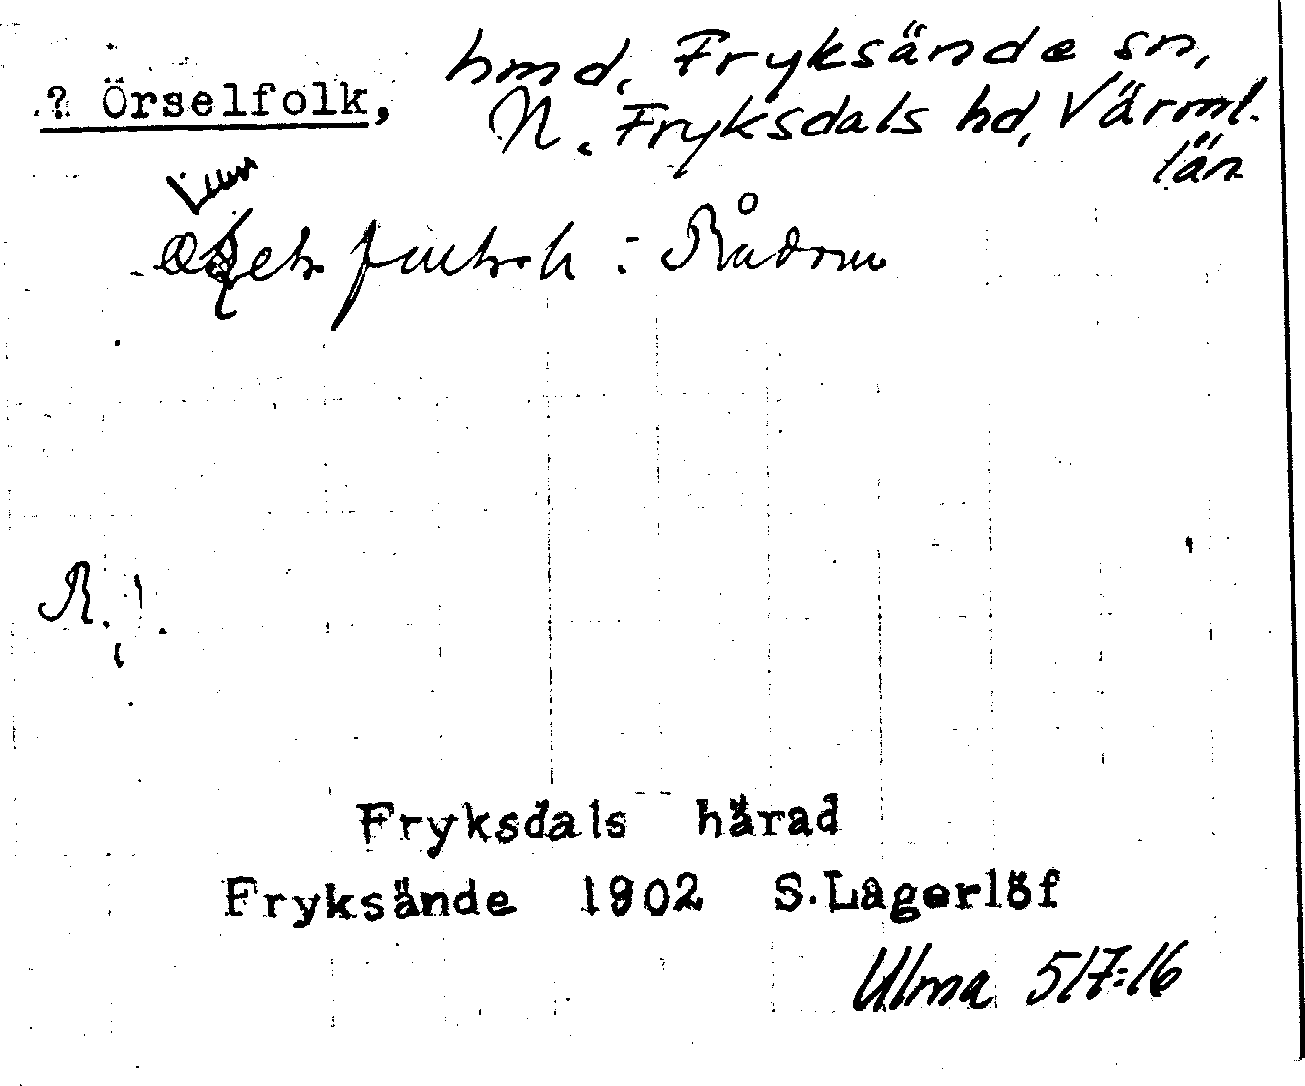 ? Örselfolk,
hmd. Fryksände sn,
N. Fryksdals hd, Värml.
län
: Rådom
R.
Fryksdals härad
Fryksände 1902 S.Lagerlöf
Ulma 517:16